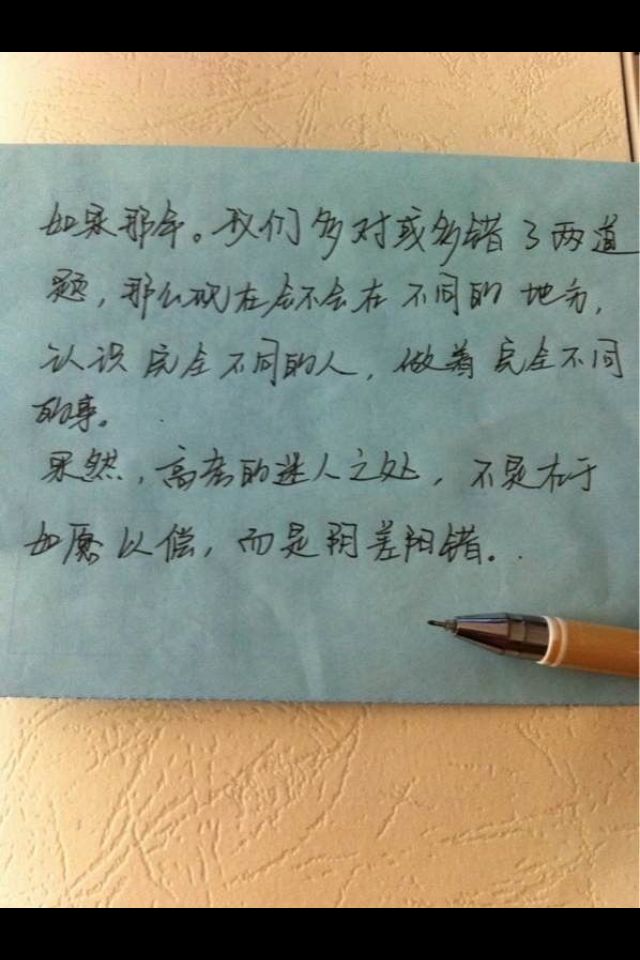 如果那年。我们多对或多错了两道
题，那么现在会不会在不同的地方，
认识完全不同的人，做着完全不同
的事。
果然，高考的迷人之处，不是在于
如愿以偿，而是阴差阳错。